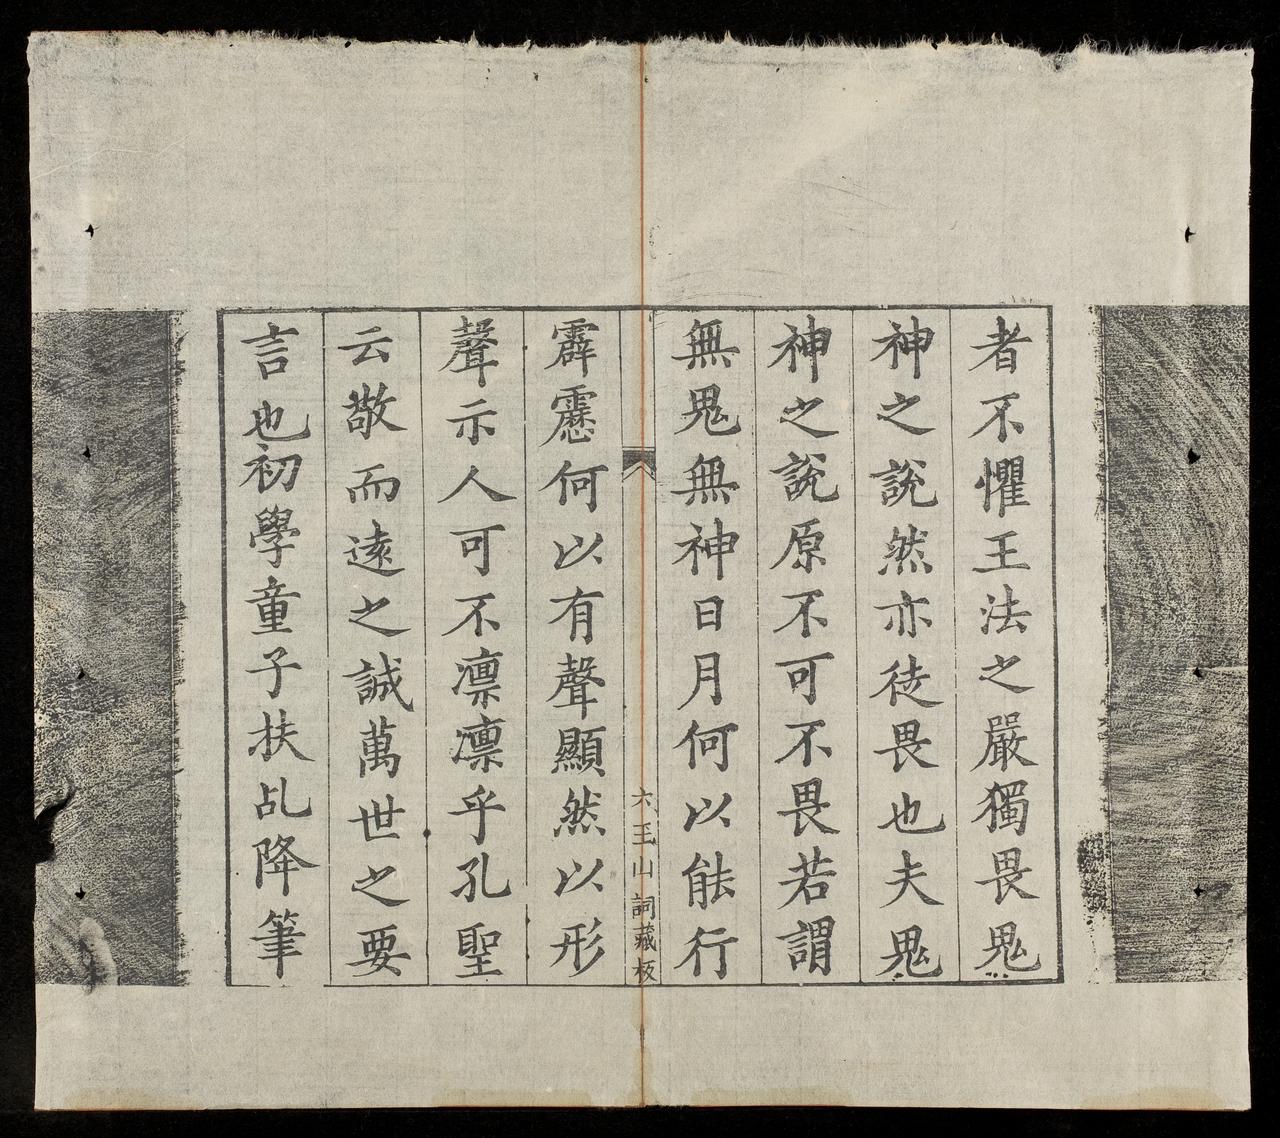 者不懼王法之嚴獨畏鬼
神之說然亦徒畏也夫鬼
神之說原不可不畏若謂
無鬼無神日月何以能行
六王山詞藏板
霹靂何以有聲顯然以形
聲示人可不凛凛乎孔聖
云敬而遠之誠萬世之要
言也初學童子扶乩降筆